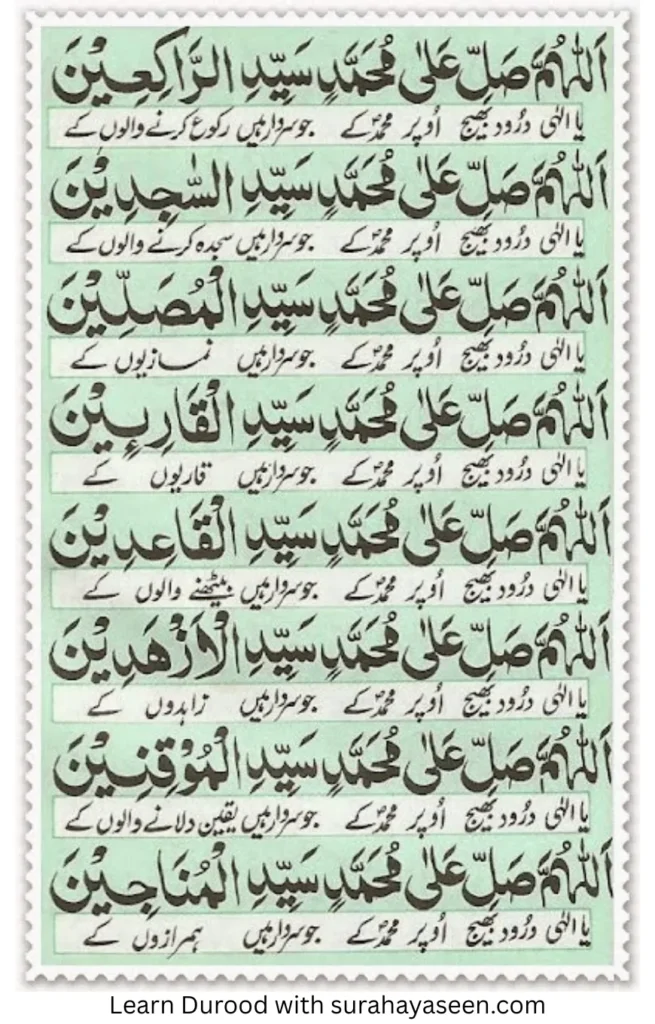 اَللّٰهُمَّ صَلِّ عَلٰى مُحَمَّدٍ سَيِّدِ الرَّاكِعِيْنَ
یا الٰہی درُود بھیج اُوپر محمدؐ کے جو سردار ہیں رکوع کرنے والوں کے
اَللّٰهُمَّ صَلِّ عَلٰى مُحَمَّدٍ سَيِّدِ السّٰجِدِيْنَ
یا الٰہی درُود بھیج اُوپر محمدؐ کے جو سردار ہیں سجدہ کرنے والوں کے
اَللّٰهُمَّ صَلِّ عَلٰى مُحَمَّدٍ سَيِّدِ الْمُصَلِّيْنَ
یا الٰہی درُود بھیج اُوپر محمدؐ کے جو سردار ہیں نمازیوں کے
اَللّٰهُمَّ صَلِّ عَلٰى مُحَمَّدٍ سَيِّدِ الْقَارِءِيْنَ
یا الٰہی درُود بھیج اُوپر محمدؐ کے جو سردار ہیں قاریوں کے
اَللّٰهُمَّ صَلِّ عَلٰى مُحَمَّدٍ سَيِّدِ الْقَاعِدِيْنَ
یا الٰہی درُود بھیج اُوپر محمدؐ کے جو سردار ہیں بیٹھنے والوں کے
اَللّٰهُمَّ صَلِّ عَلٰى مُحَمَّدٍ سَيِّدِ الْاَزْهَدِيْنَ
یا الٰہی درُود بھیج اُوپر محمدؐ کے جو سردار ہیں زاہدوں کے
اَللّٰهُمَّ صَلِّ عَلٰى مُحَمَّدٍ سَيِّدِ الْمُوْقِنِيْنَ
یا الٰہی درُود بھیج اُوپر محمدؐ کے جو سردار ہیں یقین دلانے والوں کے
اَللّٰهُمَّ صَلِّ عَلٰى مُحَمَّدٍ سَيِّدِ الْمُنَاجِيْنَ
یا الٰہی درُود بھیج اُوپر محمدؐ کے جو سردار ہیں ہمرازوں کے
Learn Durood with surahayaseen.com